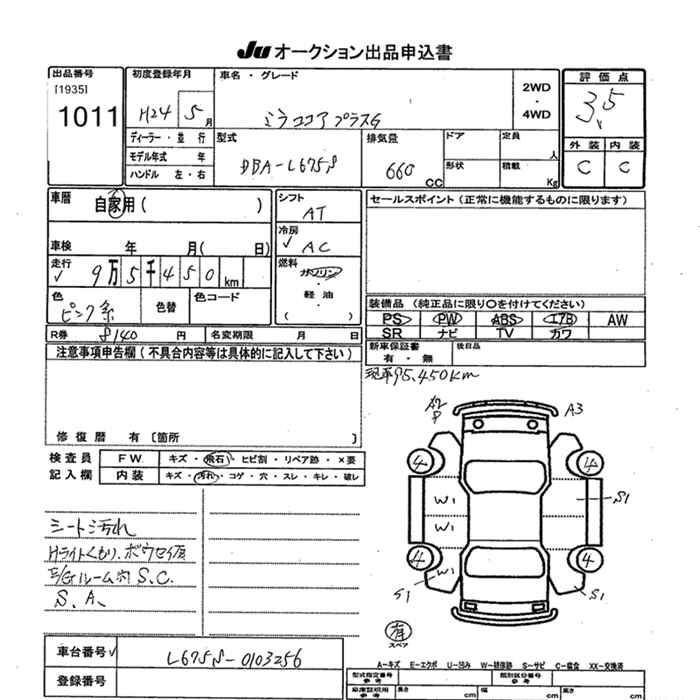 Ju オークション出品申込書
出品番号 初度登録年月 車名・グレード 評価点
[1935]
1011
H24 5月 ミラココアプラスG 2WD・4WD 3.5
ディーラー・並行 型式 排気量 ドア 定員 外装 内装
モデル年式 年 DBA-L675S 660 CC 人 C C
ハンドル 左・右 形状 積載 Kg
車歴 自家用( ) シフト AT セールスポイント(正常に機能するものに限ります)
冷房 AC
車検 年 月( 日)
走行 9万5千450km 燃料 ガソリン
軽油
( )
色 ピンク系 色替 色コード 装備品(純正品に限り○を付けてください)
PS PW ABS エアB AW
R券 8140円 名変期限 月 日 SR ナビ TV カワ
注意事項申告欄(不具合内容等は具体的に記入して下さい) 新車保証書 有・無 後日品
現車95,450km
修復歴 有 〔箇所 〕
検査員 FW キズ・飛石・ヒビ割・リペア跡・×要
記入欄 内装 キズ・汚れ・コゲ・穴・スレ・キレ・破レ
A2 A3
P
4 4
W1 S1
W1
4 4
W1
S1 S1
シート汚れ
Hライトくもり、ボウセイ有
E/Gルーム内S.C.
S.A.
有
スペア
A-キズ E-エクボ U-凹み W-補修跡 S-サビ C-腐食 XX-交換済
車台番号 L675S-0103256
型式指定番号 参考 類別区分番号 参考
登録番号
車庫証明用 参考 長さ cm 幅 cm 高さ cm